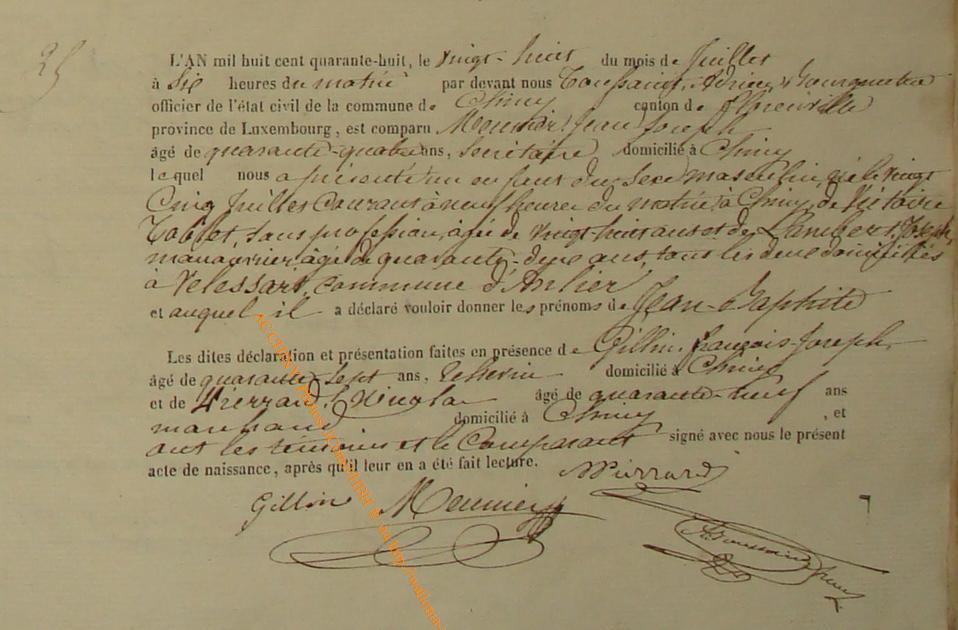 25
L'AN mil huit cent quarante-huit, le vingt-huit du mois de Juillet
à six heures du matin par devant nous Toussaint, Adrien
officier de l'état civil de la commune de Chiny canton de Florenville
province de Luxembourg, est comparu Meunier, Jean Joseph
âgé de quarante-quatre ans, secrétaire domicilié à Chiny
lequel nous a présenté un enfant du sexe masculin, né le vingt
cinq Juillet courant à neuf heures du matin, à Chiny, de Victoire
sans profession, agée de vingt huit ans et de Lambert, Joseph,
manouvrier, âgé de quarante-deux ans, tous les deux domiciliés
à Vlessart, commune d'Anlier
et auquel il a déclaré vouloir donner les prénoms de Jean-Baptiste
Les dites déclaration et présentation faites en présence de Gillin, françois-Joseph,
âgé de quarante-sept ans, domicilié à Chiny
et de Pierrard, Nicolas âgé de quarante-neuf ans
marchand domicilié à Chiny, et
ont les témoins et le Comparant signé avec nous le présent
acte de naissance, après qu'il leur en a été fait lecture.
NPierrard
Gillin Meunier
Toussaint